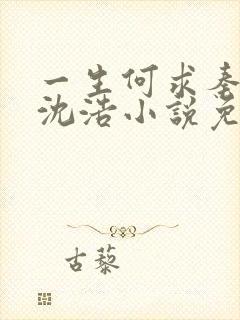 一生何求秦
沈浩小說免
古藜